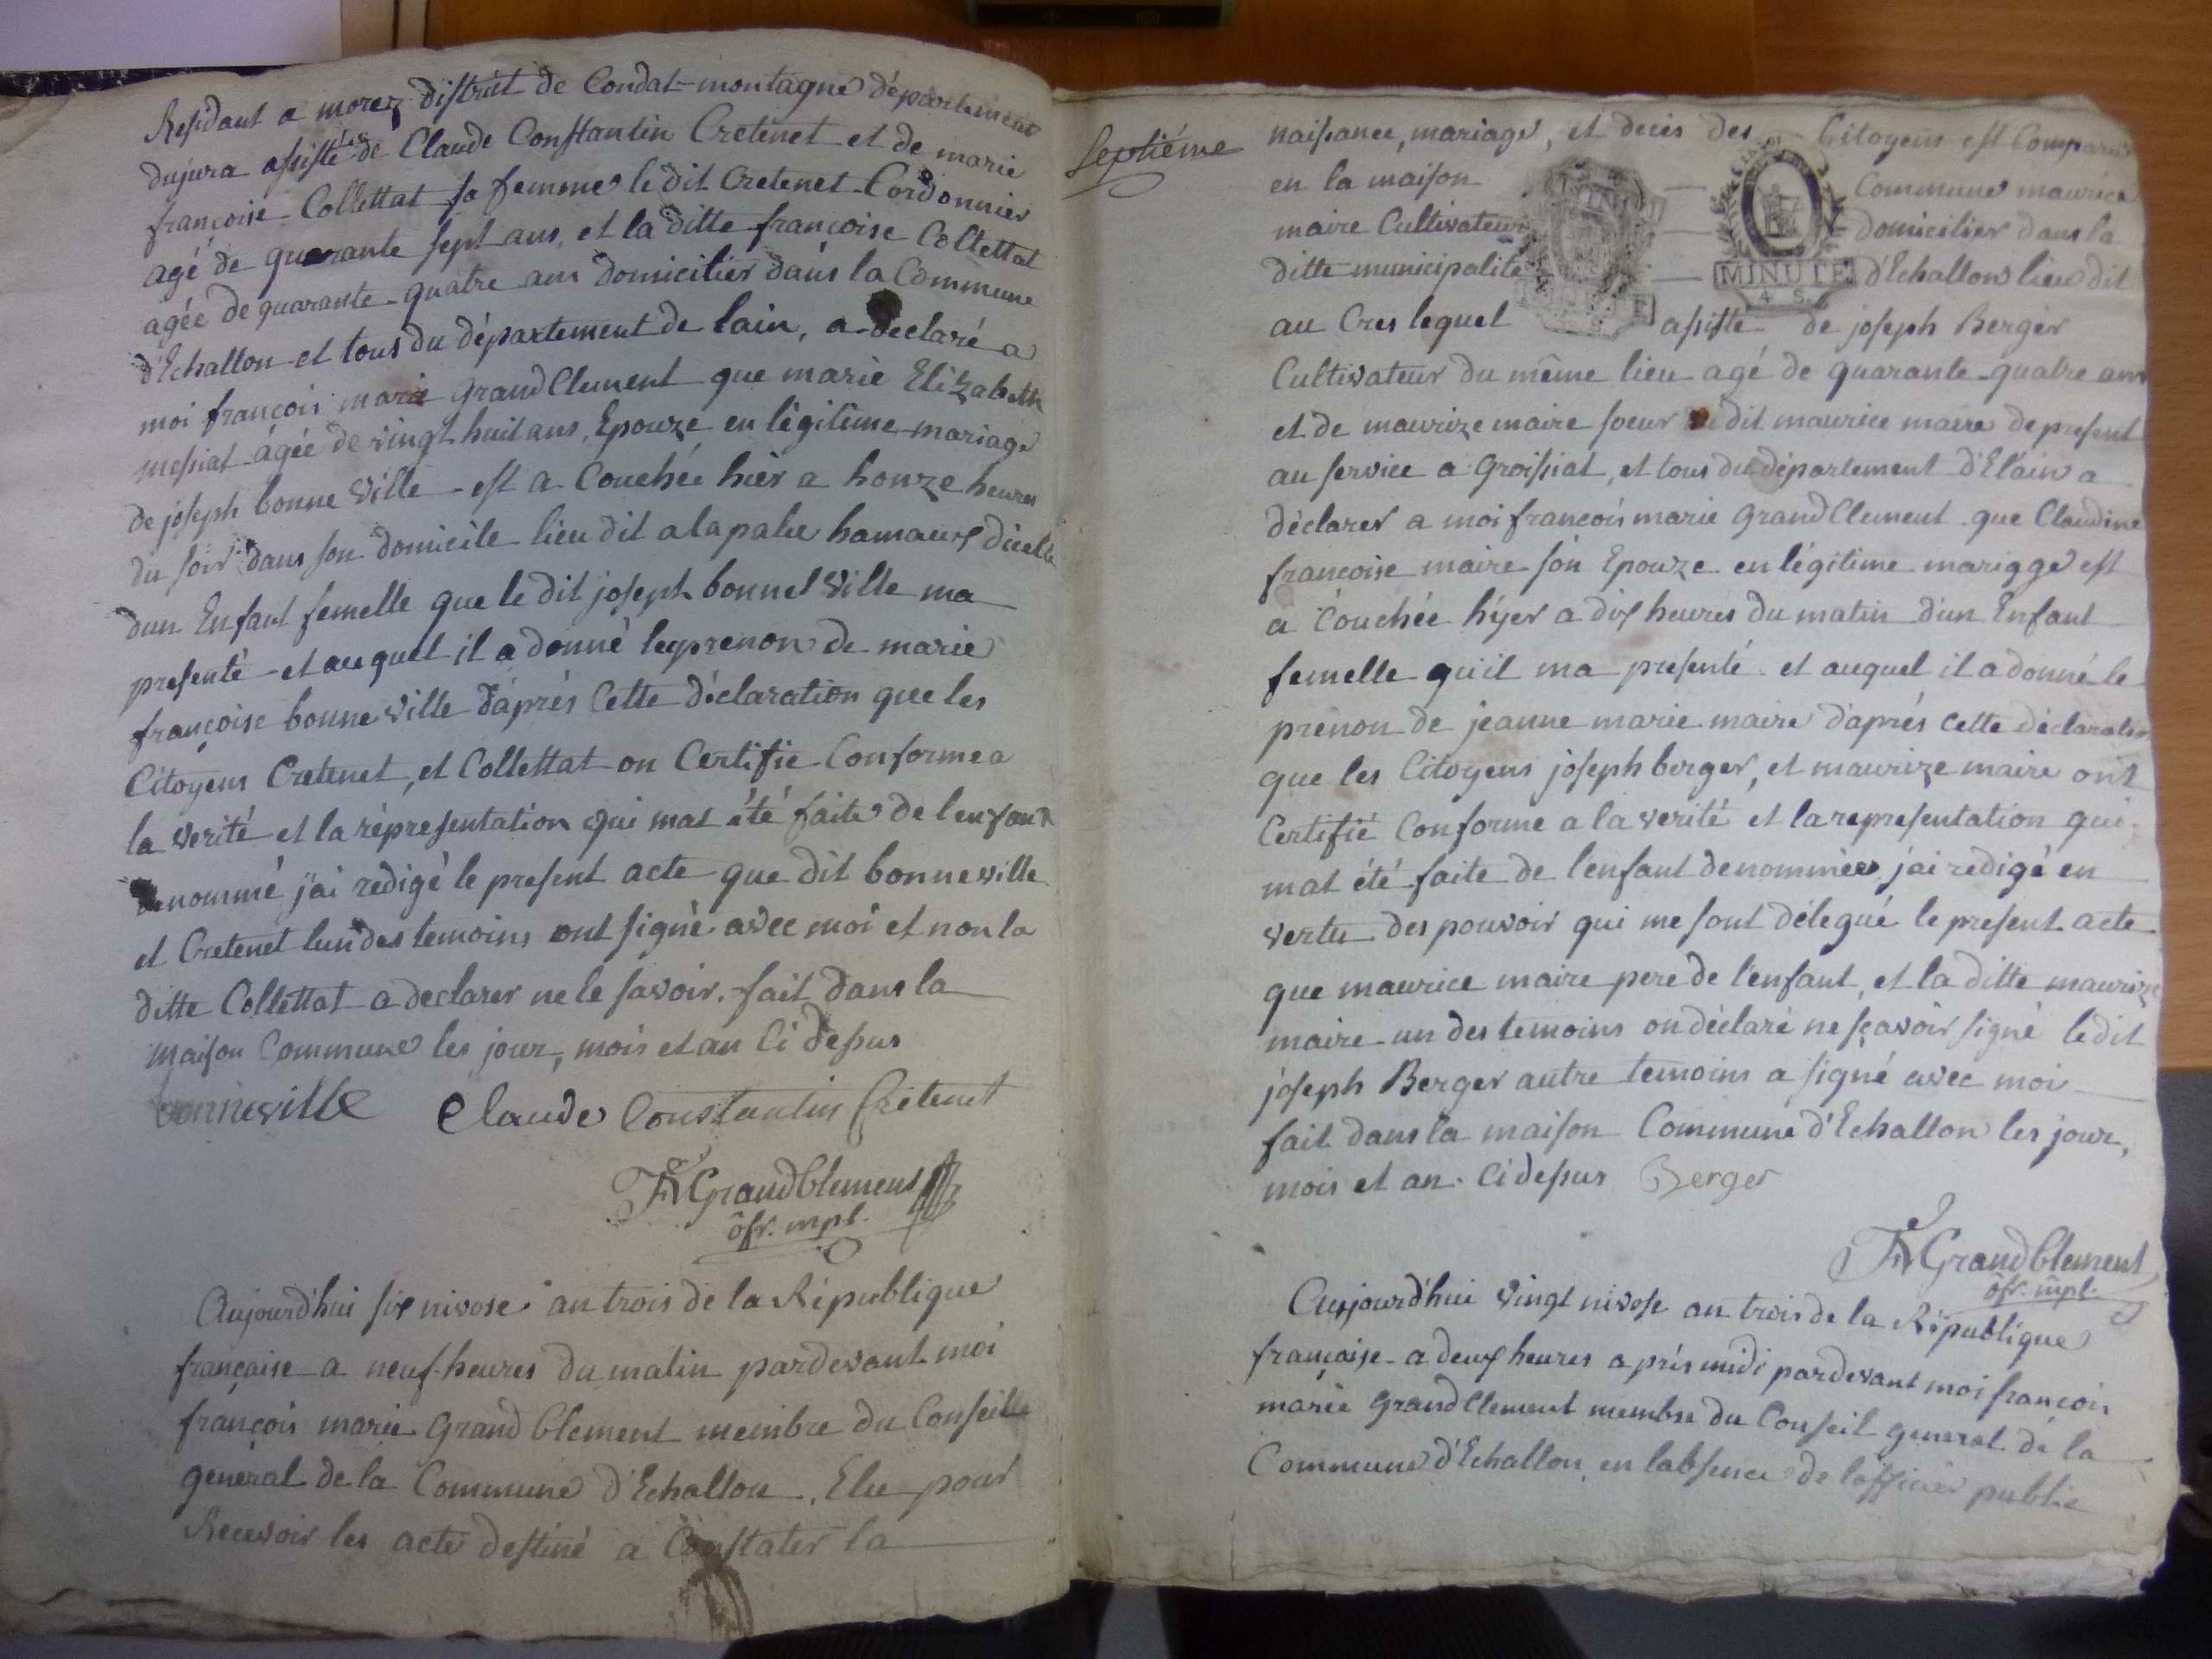 Residant a morez district de Condat-montagne département
dujura assisté de Claude Constantin Cretenet et de marie
françoise Collettat sa femme ledit Cretenet Cordonnier
agé de quarante sept ans, et la ditte françoise Collettat
agée de quarante quatre ans domicilier dans la Commune
d'Echallon et tous du département de lain, a déclaré a
moi françois marie grandClement que marie Elizabeth
messiat agée de vingt huit ans, Epouze en légitime mariage
de joseph bonne ville est a Couchée hier a honze heures
du soir dans son domicile lieu dit a la palue hamaux dicelle
dun Enfant femelle que le dit joseph bonnel ville ma
presenté et auquel il a donné leprenon de marie
françoise bonne ville daprés Cette déclaration que les
Citoyens Cretenet, et Collettat on Certifie Conforme a
la verité et la répresentation qui mat été faite de l'enfant
denommé j'ai rédigé le present acte que dit bonneville
et Cretenet lun des temoins ont signé avec moi et non la
ditte Collettat a declarer ne le savoir. fait dans la
maison Commune les jour, mois et an Ci dessus
bonneville Claude Constantin Cretenet
GrandClement
ofr. mpl.
Aujourd'hui six nivose an trois de la République
française a neuf heures du matin pardevant moi
françois marie Grand Clement membre du Conseille
général de la Commune d'Echallon, Elu pour
Recevoir les acte destiné a Constater la
Septiéme
naissance, mariage, et decés des Citoyens est Comparu
en la maison Commune maurice
maire Cultivateur domicilier dans la
ditte municipalite d'Echallon lieu dit
MINUTE
4 S.
au Cres lequel assisté de joseph Berger
Cultivateur du même lieu agé de quarante quatre ans
et de maurize maire soeur dit maurice maire de present
au service a Groissiat, et tous du département d'Elain a
déclarer a moi françois marie GrandClement que Claudine
francoise maire son Epouze en légitime mariqge est
a Couchée hyer a dix heures du matin d'un Enfant
femelle qu'il ma presenté et auquel il a donné le
prénon de jeanne marie maire d'aprés cette declaration
que les Citoyens joseph berger, et maurize maire ont
Certifié Conforme a la verité et la representation qui
mat été faite de l'enfant denommée j'ai redigé en
vertu des pouvoir qui me sont délegué le present acte
que maurice maire pere de l'enfant, et la ditte maurize
maire un des temoins on déclaré ne sçavoir signé ledit
joseph Berger autre temoins a signé avec moi
fait dans la maison Commune d'Echallon les jour,
mois et an. Ci dessus Berger
GrandClement
ofr. mpl.
Aujourd'hui vingt nivose an trois de la République
française a deux heures aprés midi pardevant moi françois
marie GrandClement membre du Conseil general de la
Commune d'Echallon, en labsence de l'officier public